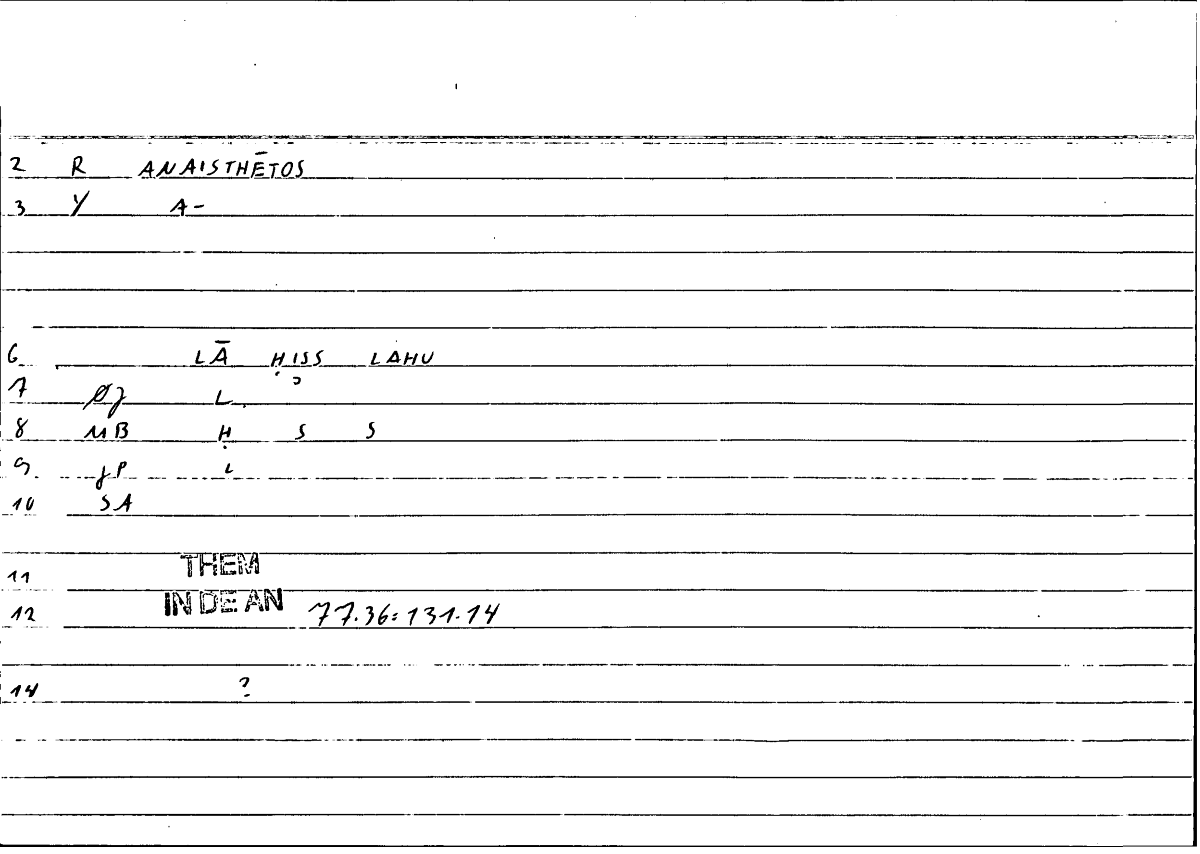 2 R ANAISTHĒTOS
3 Y A-
6 LĀ ḤISS LAHU
7 L
8 MB Ḥ S S
9 JP L
10 SA
11 THEM
12 IN DE AN 77.36:131.14
14 ?